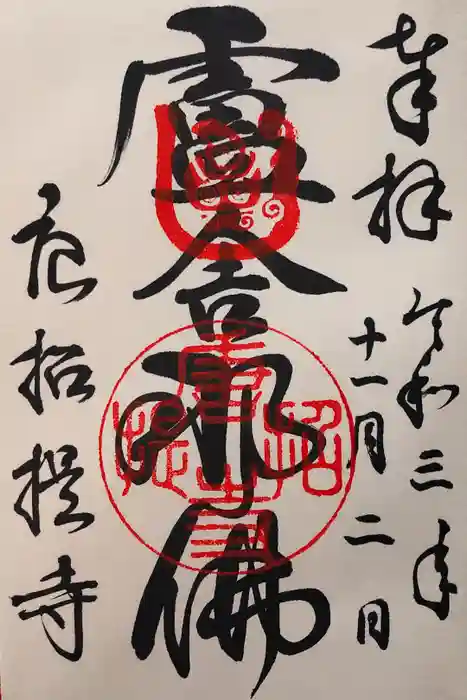 奉拝
令和三年
十一月二日
盧舎那佛
唐招提寺
唐招提寺